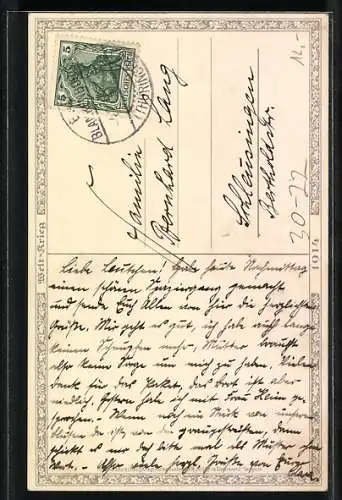 12.-
5 5
BLAN (THÜRING
Familie
Bernhard Lang
Schleusingen
Bertholdstr.
30-22
Welt-Krieg 1914
Liebe Leutchen! Habe heute Nachmittag
einen schönen Spaziergang gemacht
und sende Euch Allen von hier die herzlichsten
Grüße. Mir geht es gut, ich habe auch lange
keinen Schnupfen mehr, Mutter braucht
also keine Sorge um mich zu haben. Vielen
Dank für das Paket, das Brot ist aber
niedlich. Gestern habe ich mit Frau Klein ge-
sprochen. Wenn noch ein Stück von
Blusen da ist, von der
schickt es mir doch bitte mal als Muster ohne
Wert. - Also viele herzl. Grüße von Eurer